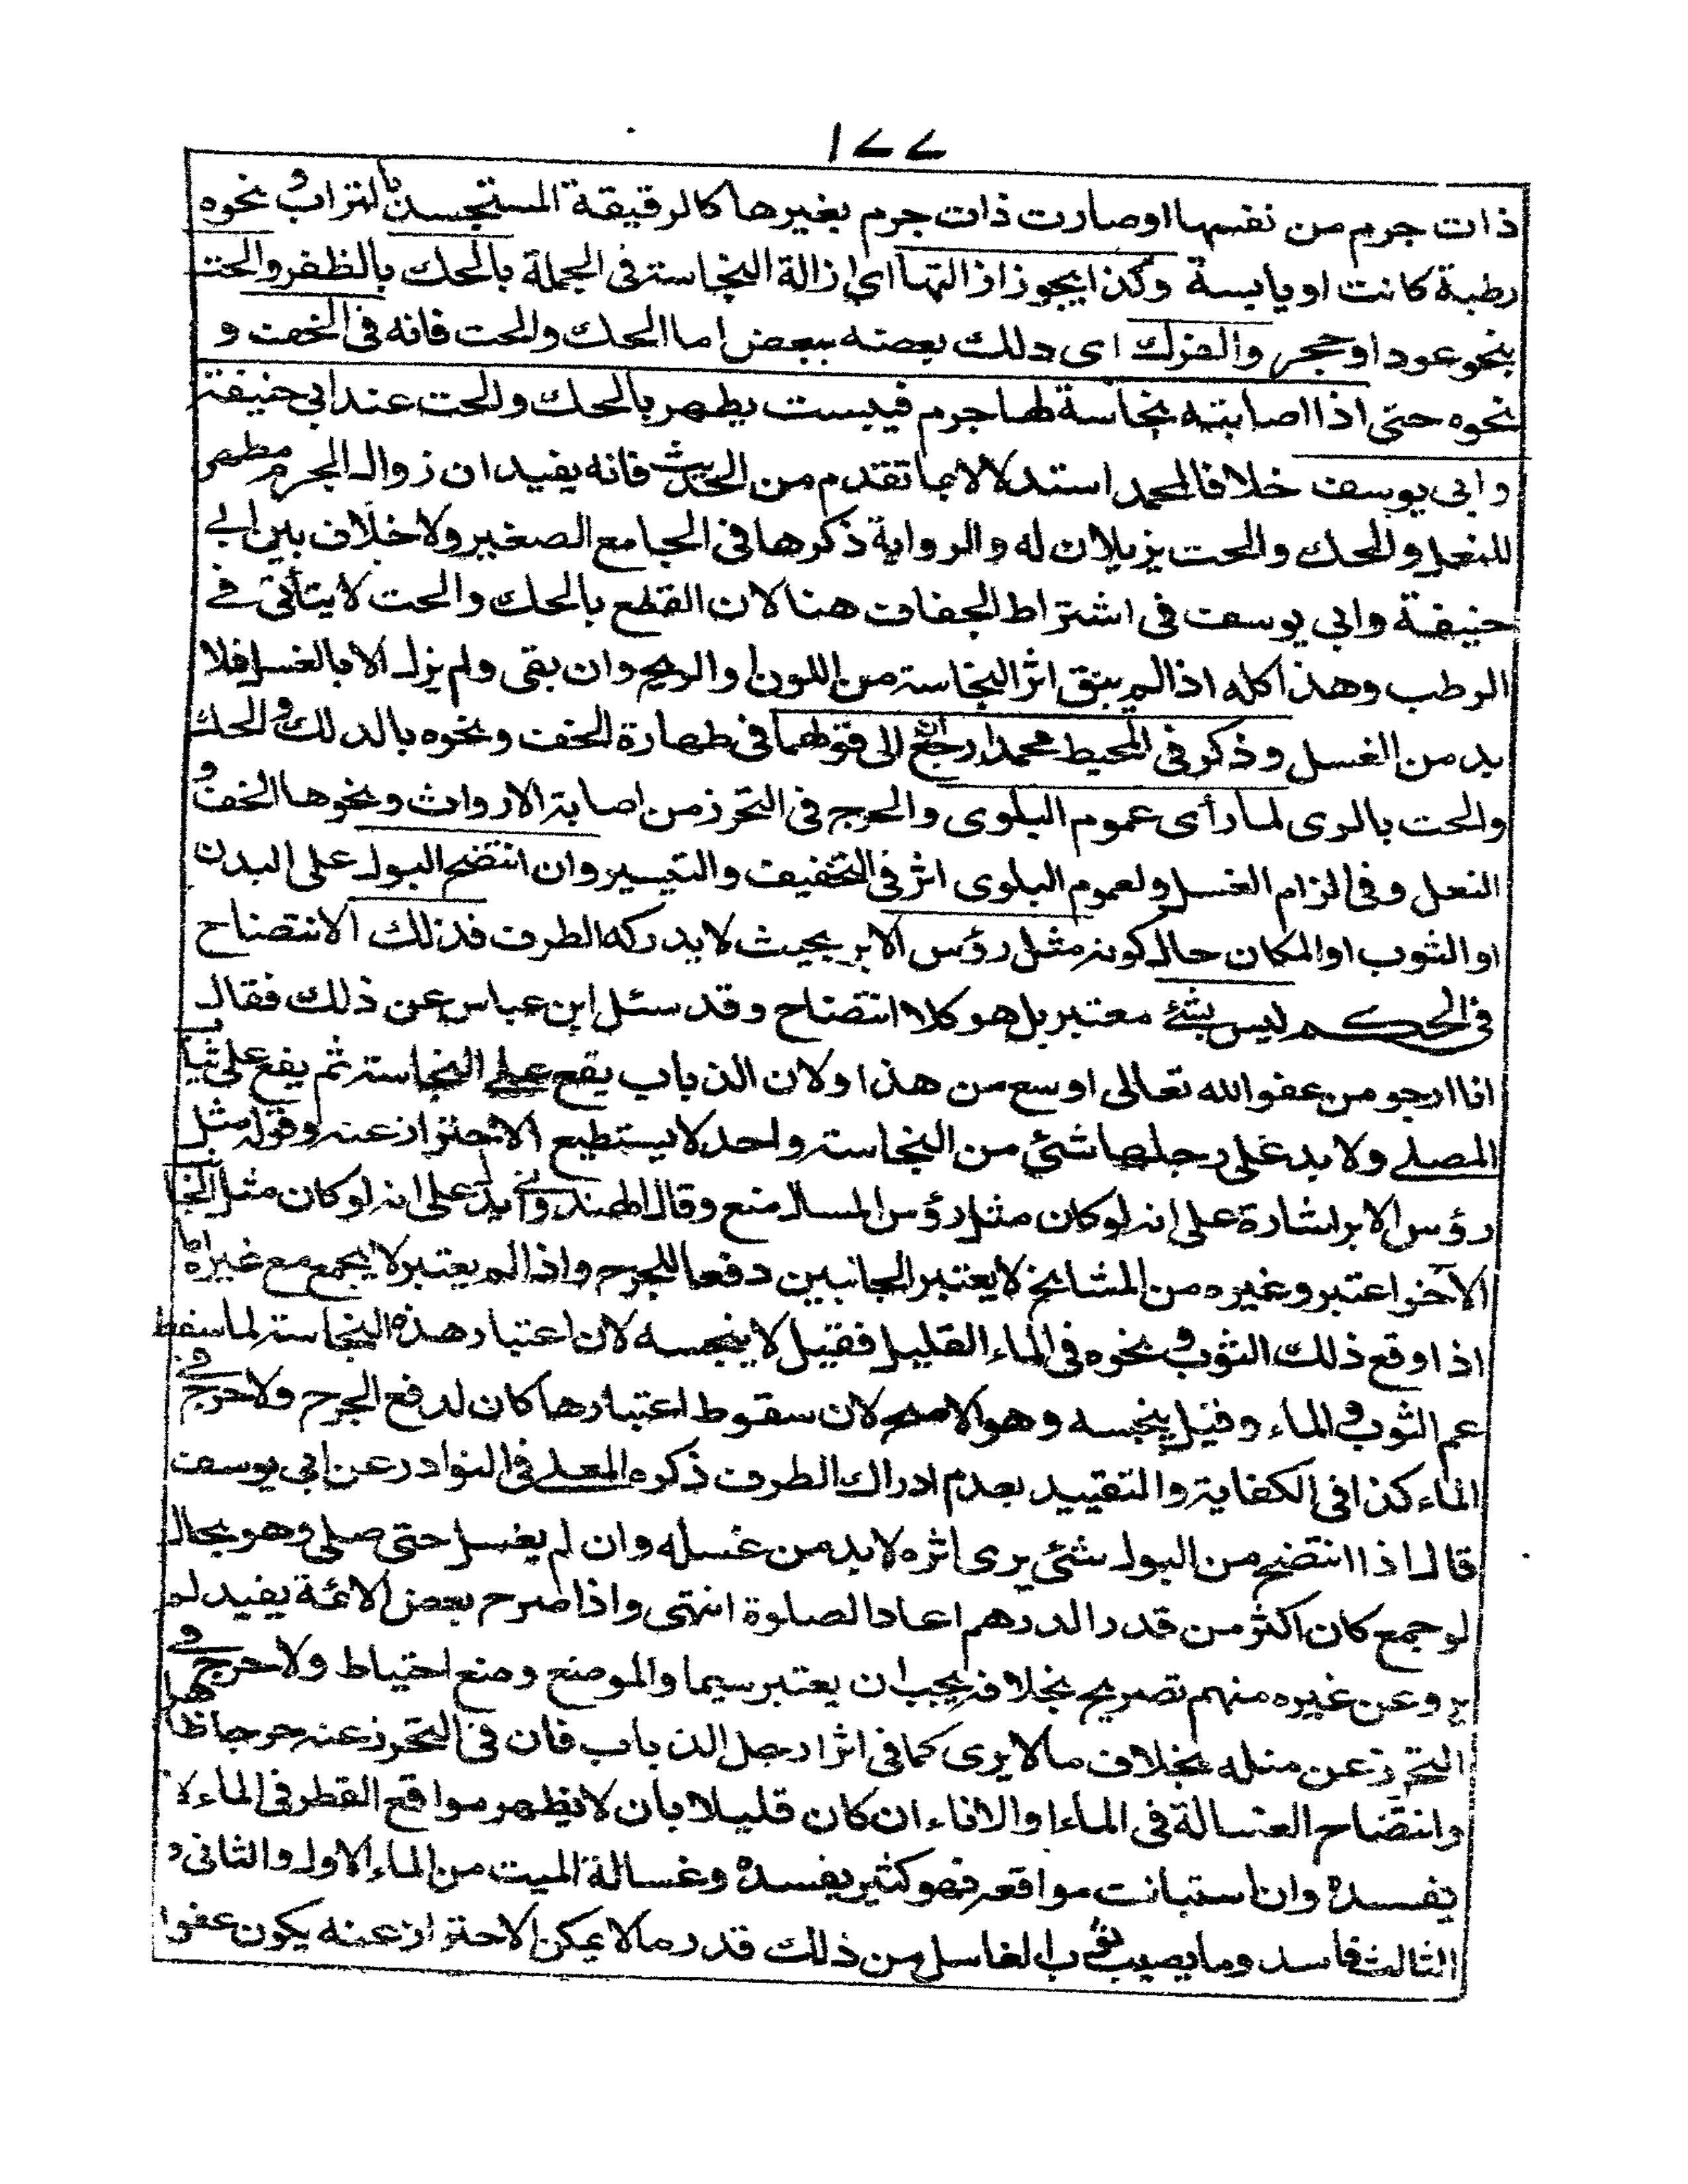 ١٧٧
ذات جرم من نفسها او صارت ذات جرم بغيرها كالرقيقة المستجسدة بالتراب و نحوه
رطبة كانت او يابسة وكذا يجوز ازالتها اي ازالة النجاسة فى الجملة بالحك بالظفر والحت
بنحو عود او حجر والفرك اى دلك بعضه ببعض اما الحك والحت فانه فى الخف و
نحوه حتى اذا اصابته نجاسة لها جرم فيبست يطهر بالحك والحت عند ابى حنيفة
وابى يوسف خلافا لمحمد استدلالا بما تقدم من الحديث فانه يفيد ان زوال الجرم مطهر
للنعل والحك والحت يزيلان له والرواية ذكرها فى الجامع الصغير ولا خلاف بين ابى
حنيفة وابي يوسف فى اشتراط الجفاف هنا لان القطع بالحك والحت لا يتأتى فى
الرطب وهذا كله اذا لم يبق اثر النجاسة من اللون والريح وان بقى ولم يزل الا بالغسل فلا
بد من الغسل وذكر فى المحيط محمد رجع الى قولهما فى طهارة الخف ونحوه بالدلك والحك
والحت بالرى لما رأى عموم البلوى والحرج فى التحرز من اصابة الارواث ونحوها الخف و
النعل وفى الزام الغسل ولعموم البلوى اثر فى التخفيف والتيسير وان انتضح البول على البدن
او الثوب او المكان حال كونه مثل رؤس الابر بحيث لا يدركه الطرف فذلك الانتضاح
فى الحكم ليس بشئ معتبر بل هو كلا انتضاح وقد سئل ابن عباس عن ذلك فقال
انا ارجو من عفو الله تعالى اوسع من هذا ولان الذباب يقع على النجاسة ثم يقع على ثياب
المصلے ولا بد على رجلها شئ من النجاسة واحد لا يستطيع الاحتراز عنه وقوله مثل
رؤس الابر اشارة على انه لو كان مثل رؤس المسال منع وقال الهندوانى يدل على انه لو كان مثل الجانب
الآخر اعتبر وغيره من المشائخ لا يعتبر الجانبين دفعا للحرج واذا لم يعتبر لا يجمع مع غيره اما
اذا وقع ذلك الثوب و نحوه فى الماء القليل فقيل لا ينجسه لان اعتبار هذه النجاسة لما سقط
عم الثوب و الماء وقيل ينجسه وهو الاصح لان سقوط اعتبارها كان لدفع الحرج ولا حرج فى
الماء كذا فى الكفاية والتقييد بعدم ادراك الطرف ذكره المعلے فى النوادر عن ابى يوسف
قال اذا انتضح من البول شئ يرى اثره لا بد من غسله وان لم يغسل حتى صلى وهو بحال
لو جمع كان اكثر من قدر الدرهم اعاد الصلوة انتهى واذا صرح بعض الائمة يفيد لم
وعن غيره منهم تصريح بخلافه يجب ان يعتبر سيما والموضع وضع احتياط ولا حرج فى
التحرز عن مثله بخلاف ما لا يرى كما فى اثر ارجل الذباب فان فى التحرز عنه حرجا ظاهرا
وانتضاح الغسالة فى الماء او الاناء ان كان قليلا بان لا يظهر مواقع القطر فى الماء لا
يفسده وان استبانت مواقعه فهو كثير يفسده وغسالة الميت من الماء الاول والثانى و
الثالث فاسد وما يصيب ثوب الغاسل من ذلك قدر ما لا يمكن الاحتراز عنه يكون عفوا